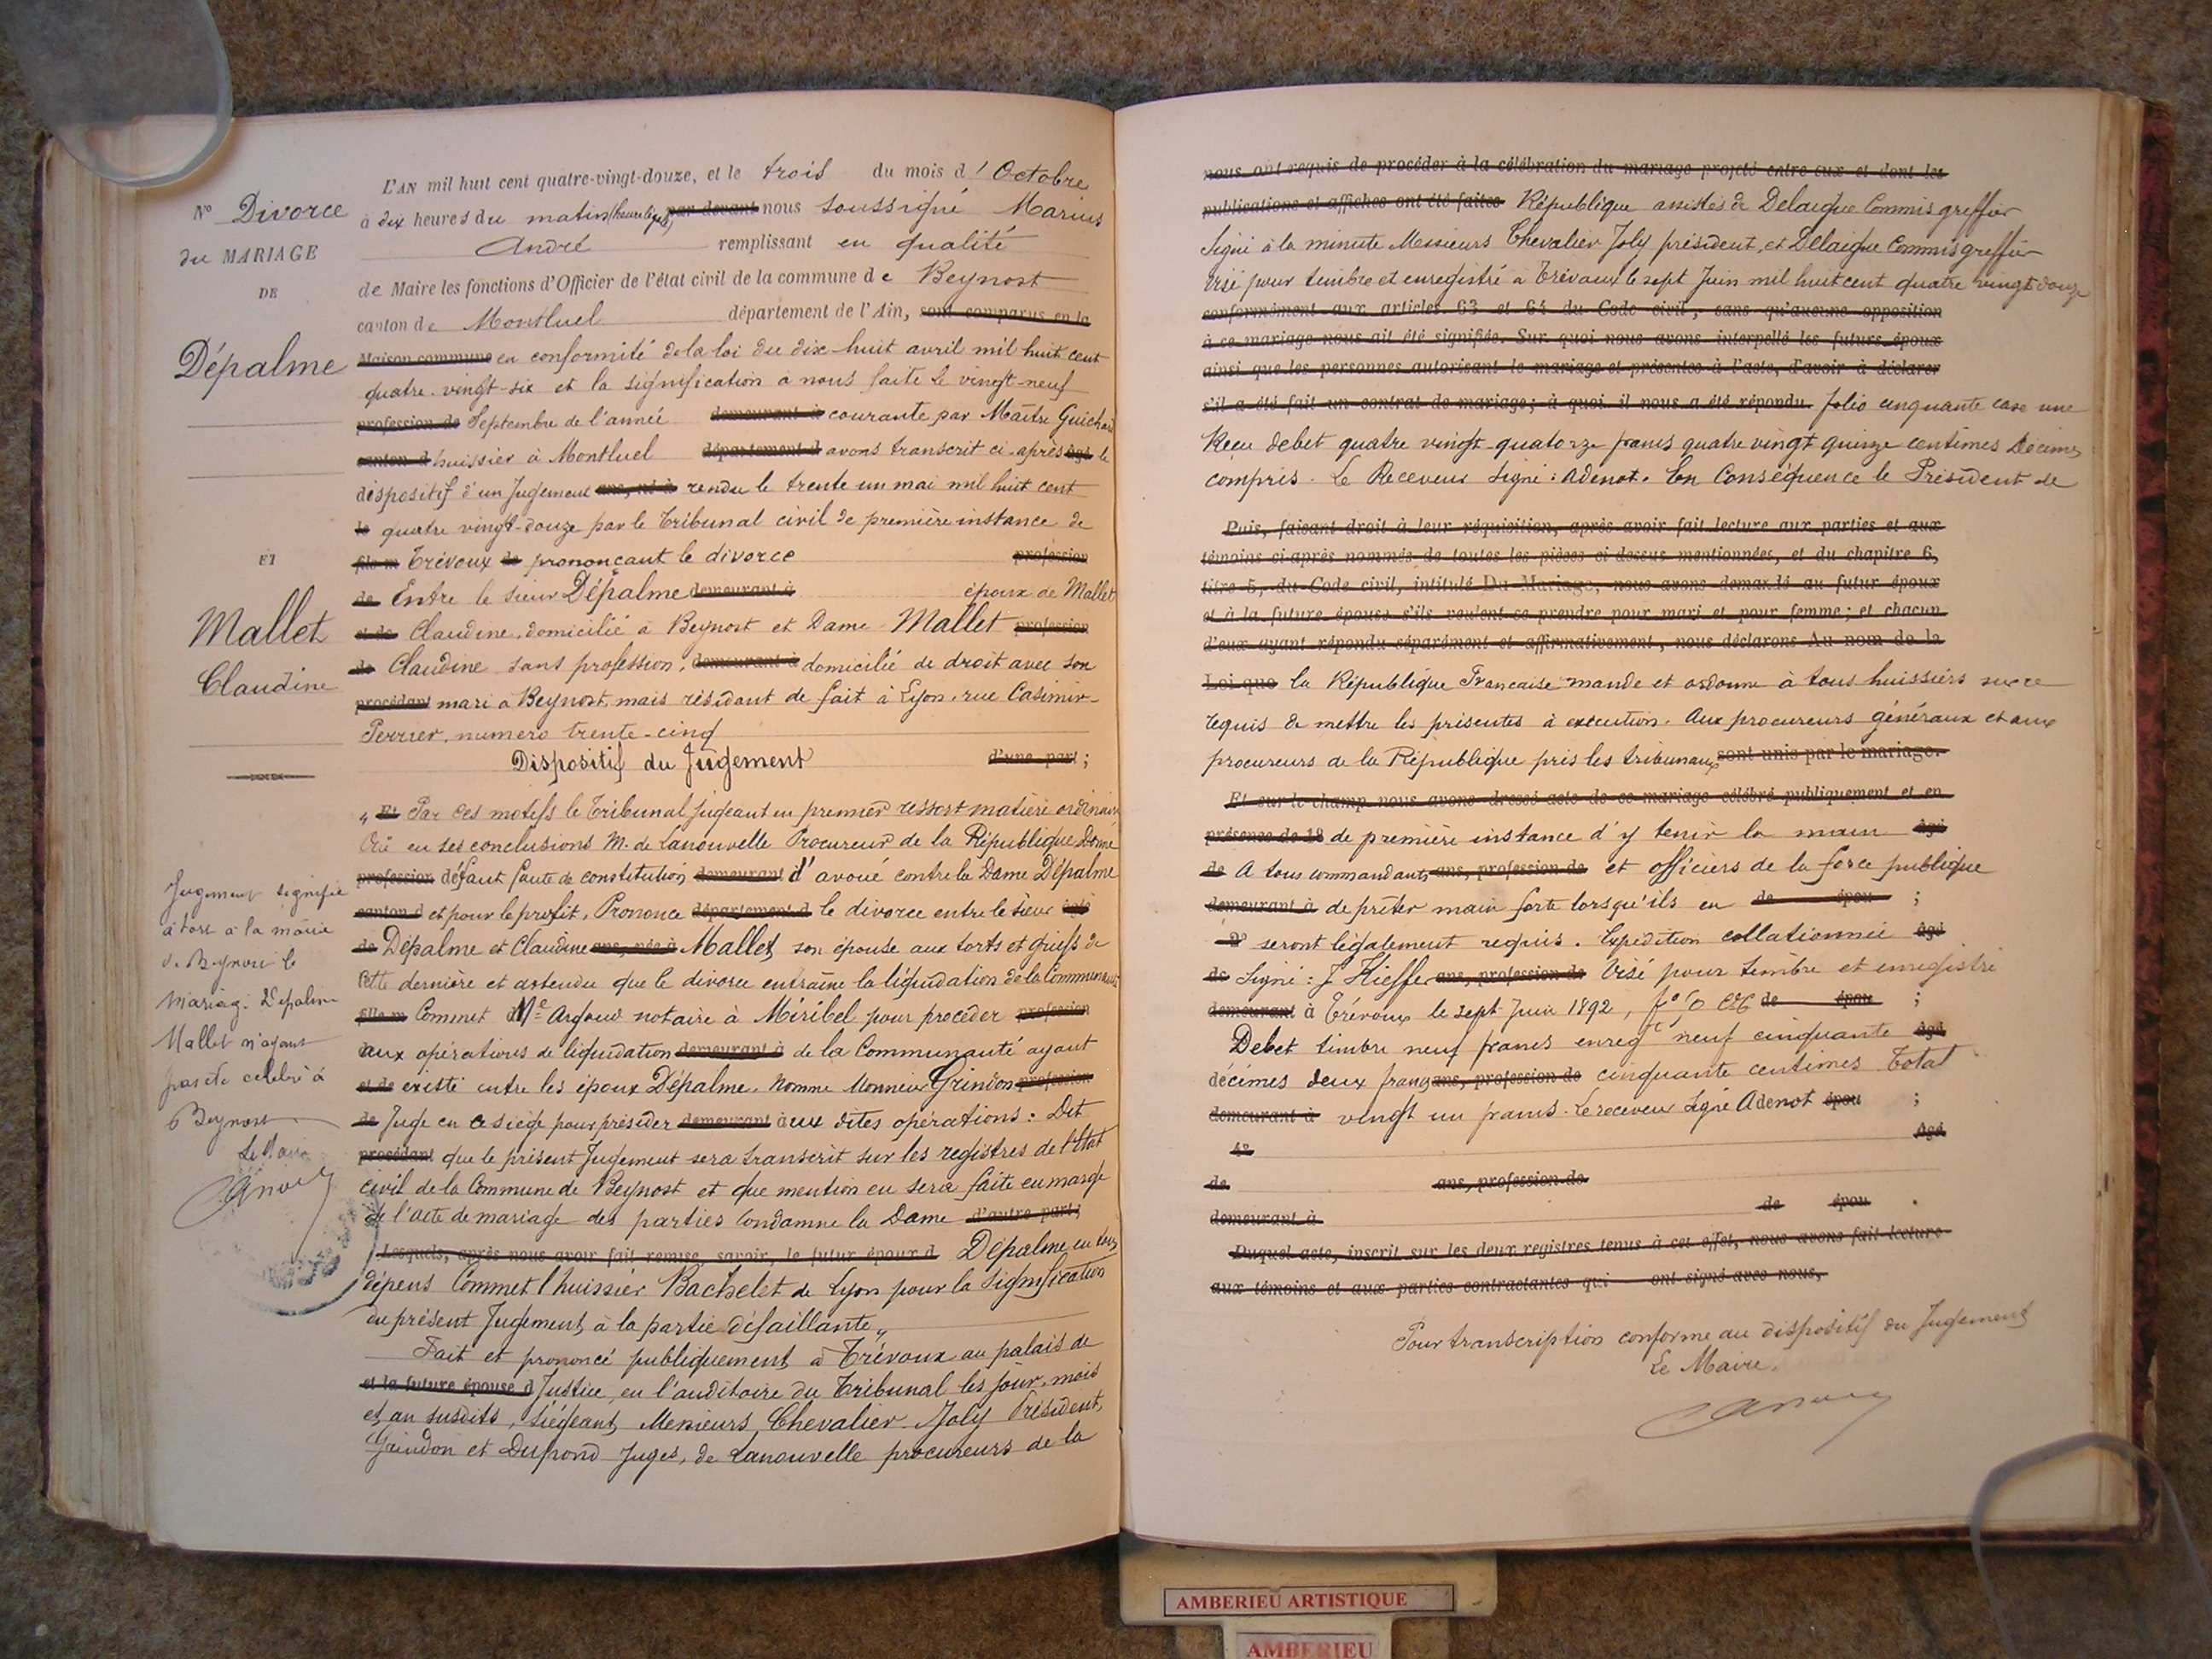 N° Divorce
du MARIAGE
DE
Dépalme
ET
Mallet
Claudine
Jugement signifié
à tort à la mairie
de Beynost le
mariage Dépalme
Mallet n'ayant
pas été célébré à
Beynost
Le Maire
L'AN mil huit cent quatre-vingt-douze, et le trois du mois d'Octobre
à dix heures du matin par devant nous soussigné Marius
André remplissant en qualité
de Maire les fonctions d'Officier de l'état civil de la commune de Beynost
canton de Montluel département de l'Ain, sont comparus en la
Maison commune en conformité de la loi du dix-huit avril mil huit cent
quatre-vingt-six et la signification à nous faite le vingt-neuf
profession de Septembre de l'année demeurant à courante par Maître Guichard
canton d huissier à Montluel département d avons transcrit ci-après âgé le
dispositif d'un Jugement ans, né à rendu le trente un mai mil huit cent
le quatre vingt-douze par le Tribunal civil de première instance de
fils m Trévoux de prononçant le divorce profession
de Entre le sieur Dépalme demeurant à époux de Mallet
et de Claudine, domicilié à Beynost et Dame Mallet profession
de Claudine sans profession, demeurant à domicilié de droit avec son
procédant mari à Beynost, mais résidant de fait à Lyon, rue Casimir-
Perrier, numéro trente-cinq
Dispositif du Jugement d'une part ;
„ Et Par ces motifs le Tribunal jugeant en premier ressort matière ordinaire
Ouï en ses conclusions M. de Lanouvelle Procureur de la République Donne
profession défaut faute de constitution demeurant d'avoué contre la Dame Dépalme
canton d et pour le profit, Prononce département d le divorce entre le sieur âgé
de Dépalme et Claudine ans, née à Mallet, son épouse aux torts et griefs de
cette dernière et attendu que le divorce entraîne la liquidation de la Communauté
fille m Commet Me Argoud notaire à Miribel pour procéder profession
aux opérations de liquidation demeurant à de la Communauté ayant
et de existé entre les époux Dépalme. Nomme Monsieur Grindon profession
de Juge en ce siège pour présider demeurant à aux dites opérations : Dit
procédant que le présent Jugement sera transcrit sur les registres de l'Etat
civil de la Commune de Beynost et que mention en sera faite en marge
de l'acte de mariage des parties Condamne la Dame d'autre part ;
Lesquels, après nous avoir fait remise, savoir, le futur époux d Dépalme en tous
dépens Commet l'huissier Bachelet de Lyon pour la signification
du présent Jugement, à la partie défaillante „
Fait et prononcé publiquement à Trévoux au palais de
et la future épouse d Justice, en l'auditoire du Tribunal les jour, mois
et an susdits, siégeant, Messieurs Chevalier-Joly Président,
Grindon et Dupond Juges, de Lanouvelle procureurs de la
nous ont requis de procéder à la célébration du mariage projeté entre eux et dont les
publications et affiches ont été faites République assistés de Delaigue Commis greffier
Signé à la minute Messieurs Chevalier Joly président, et Delaigue Commis greffier
Visé pour timbre et enregistré à Trévoux le sept Juin mil huit cent quatre vingt douze
conformément aux articles 63 et 64 du Code civil, sans qu'aucune opposition
à ce mariage nous ait été signifiée. Sur quoi nous avons interpellé les futurs époux
ainsi que les personnes autorisant le mariage et présentes à l'acte, d'avoir à déclarer
s'il a été fait un contrat de mariage ; à quoi il nous a été répondu folio cinquante case une
Reçu debet quatre vingt-quatorze francs quatre vingt quinze centimes Décimes
compris. Le Receveur signé : Adenot. En Conséquence le Président de
Puis, faisant droit à leur réquisition, après avoir fait lecture aux parties et aux
témoins ci-après nommés de toutes les pièces ci-dessus mentionnées, et du chapitre 6,
titre 5, du Code civil, intitulé Du Mariage, nous avons demandé au futur époux
et à la future épouse s'ils veulent se prendre pour mari et pour femme ; et chacun
d'eux ayant répondu séparément et affirmativement, nous déclarons Au nom de la
Loi que la République Française mande et ordonne à tous huissiers sur ce
requis de mettre les présentes à exécution. Aux procureurs généraux et aux
procureurs de la République près les tribunaux sont unis par le mariage.
Et sur-le-champ nous avons dressé acte de ce mariage célébré publiquement et en
présence de 1° de première instance d'y tenir la main âgé
de A tous commandants ans, profession de et officiers de la force publique
demeurant à de prêter main forte lorsqu'ils en de épou ;
2° seront légalement requis. Expédition collationnée âgé
de Signé : J Kieffer ans, profession de Visé pour timbre et enregistré
demeurant à Trévoux le sept Juin 1892, de épou ;
Debet timbre neuf francs enregt neuf cinquante âgé
décimes deux francs ans, profession de cinquante centimes Total
demeurant à vingt un francs. Le receveur signé Adenot épou ;
4° âgé
de ans, profession de
demeurant à de épou .
Duquel acte, inscrit sur les deux registres tenus à cet effet, nous avons fait lecture
aux témoins et aux parties contractantes qui ont signé avec nous,
Pour transcription conforme au dispositif du Jugement
Le Maire.
AMBERIEU ARTISTIQUE
AMBERIEU